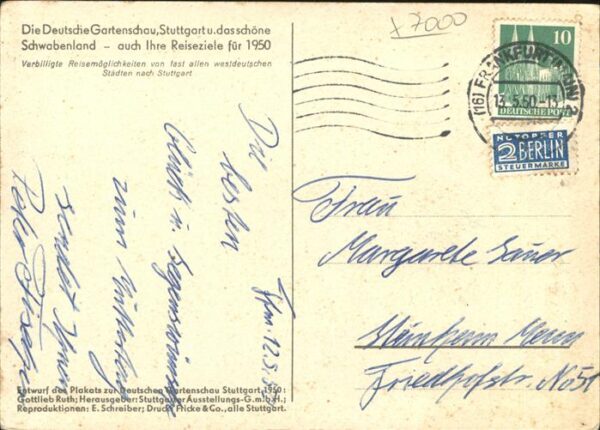 Die Deutsche Gartenschau, Stuttgart u. das schöne
Schwabenland – auch Ihre Reiseziele für 1950
Verbilligte Reisemöglichkeiten von fast allen westdeutschen
Städten nach Stuttgart
+7000
10
DEUTSCHE POST
(16) FRANKFURT (MAIN) 2
13.5.50-13
NOTOPFER
2 BERLIN
STEUERMARKE
Ffm. 12.5.
Die besten
Glück u. Segenswünsche
zum Muttertag
sendet Ihnen
Peter
Frau
Margarete Sauer
Steinheim Main
Friedhofstr. No 51
Entwurf des Plakats zur Deutschen Gartenschau Stuttgart 1950:
Gottlieb Ruth; Herausgeber: Stuttgarter Ausstellungs-G.m.b.H.;
Reproduktionen: E. Schreiber; Druck: Fricke & Co., alle Stuttgart.